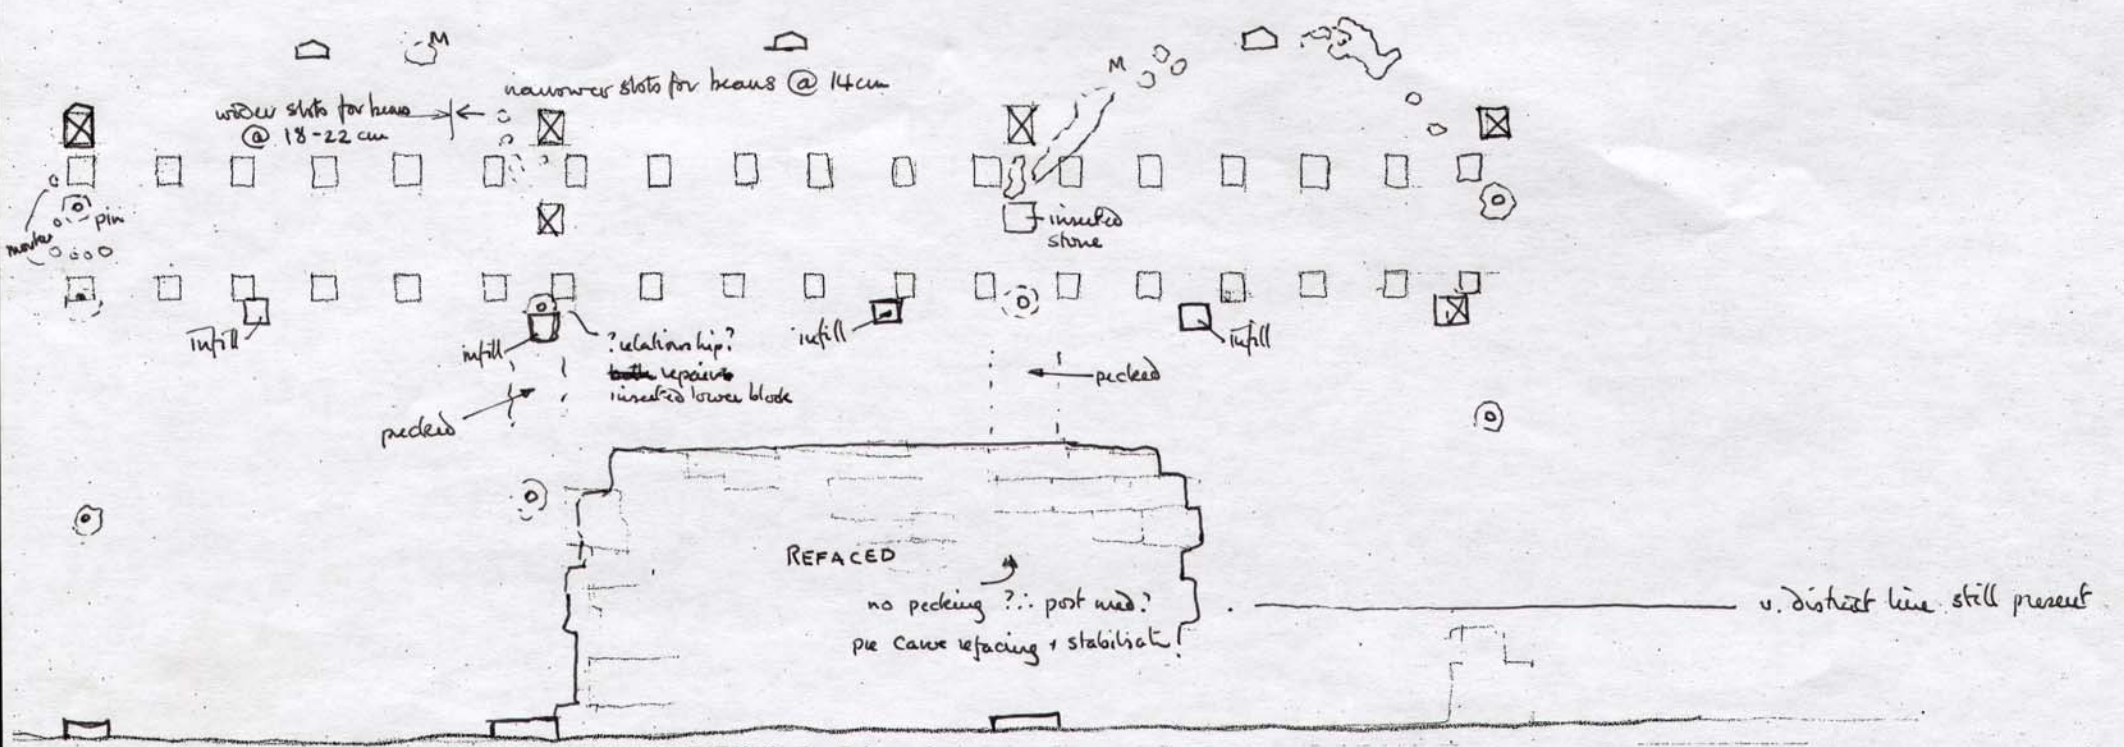 M
narrower slots for beams @ 14cm
M
wider slots for beams
@ 18-22 cm
pin
mortar
inserted
stone
infill
infill
?relationship?
both repairs
inserted lower block
infill
infill
pecked
pecked
REFACED
no pecking ?∴ post med?
pre Cawe refacing + stabilisatn!
v. distinct line still present